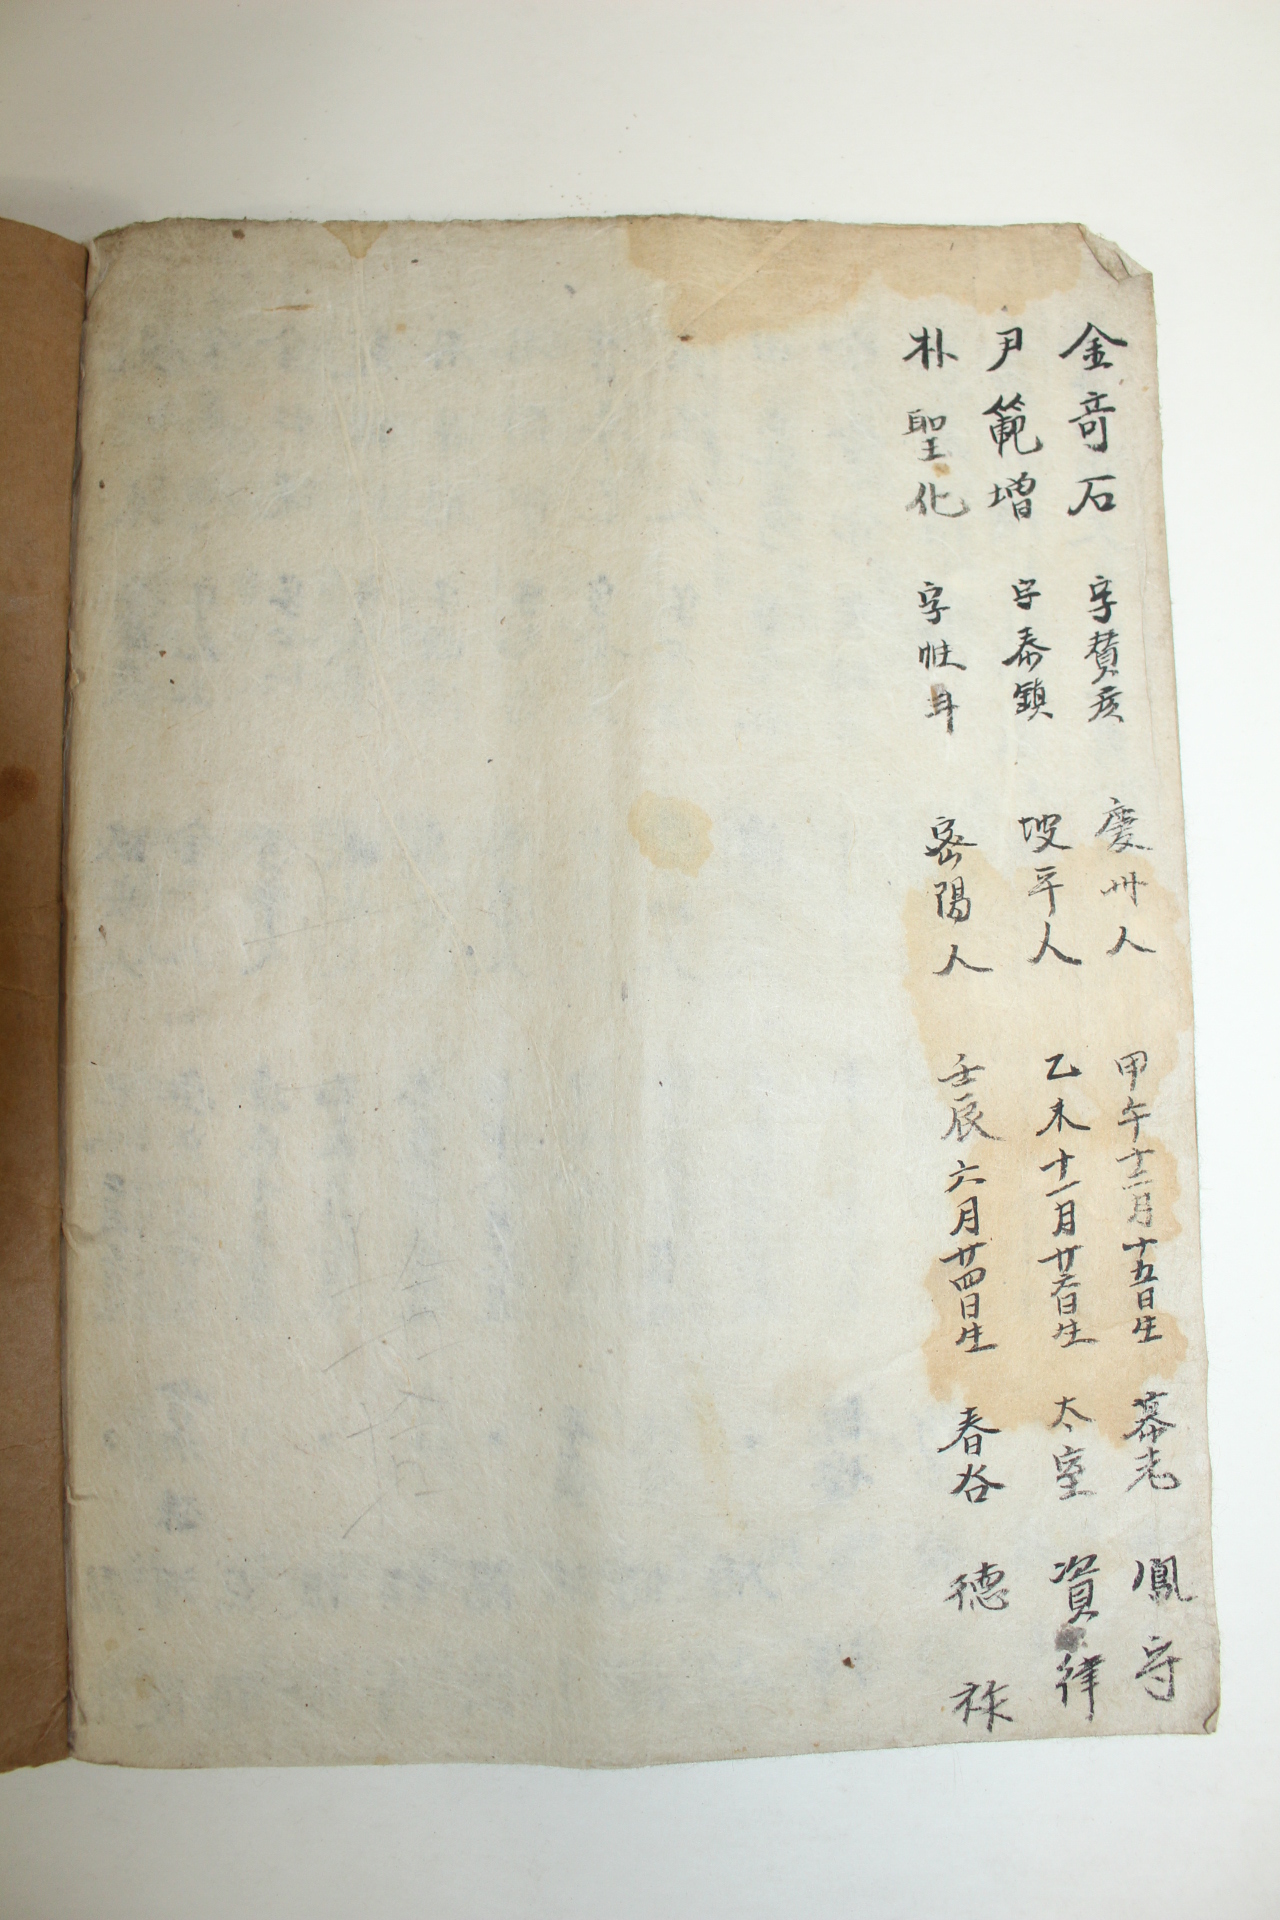 金奇石 字贊彦 慶州人 甲午十二月十五日生 慕老 鳳守
尹範增 字泰鎭 坡平人 乙未十一月廿六日生 太室 資律
朴聖化 字 密陽人 壬辰六月廿四日生 春谷 德祚